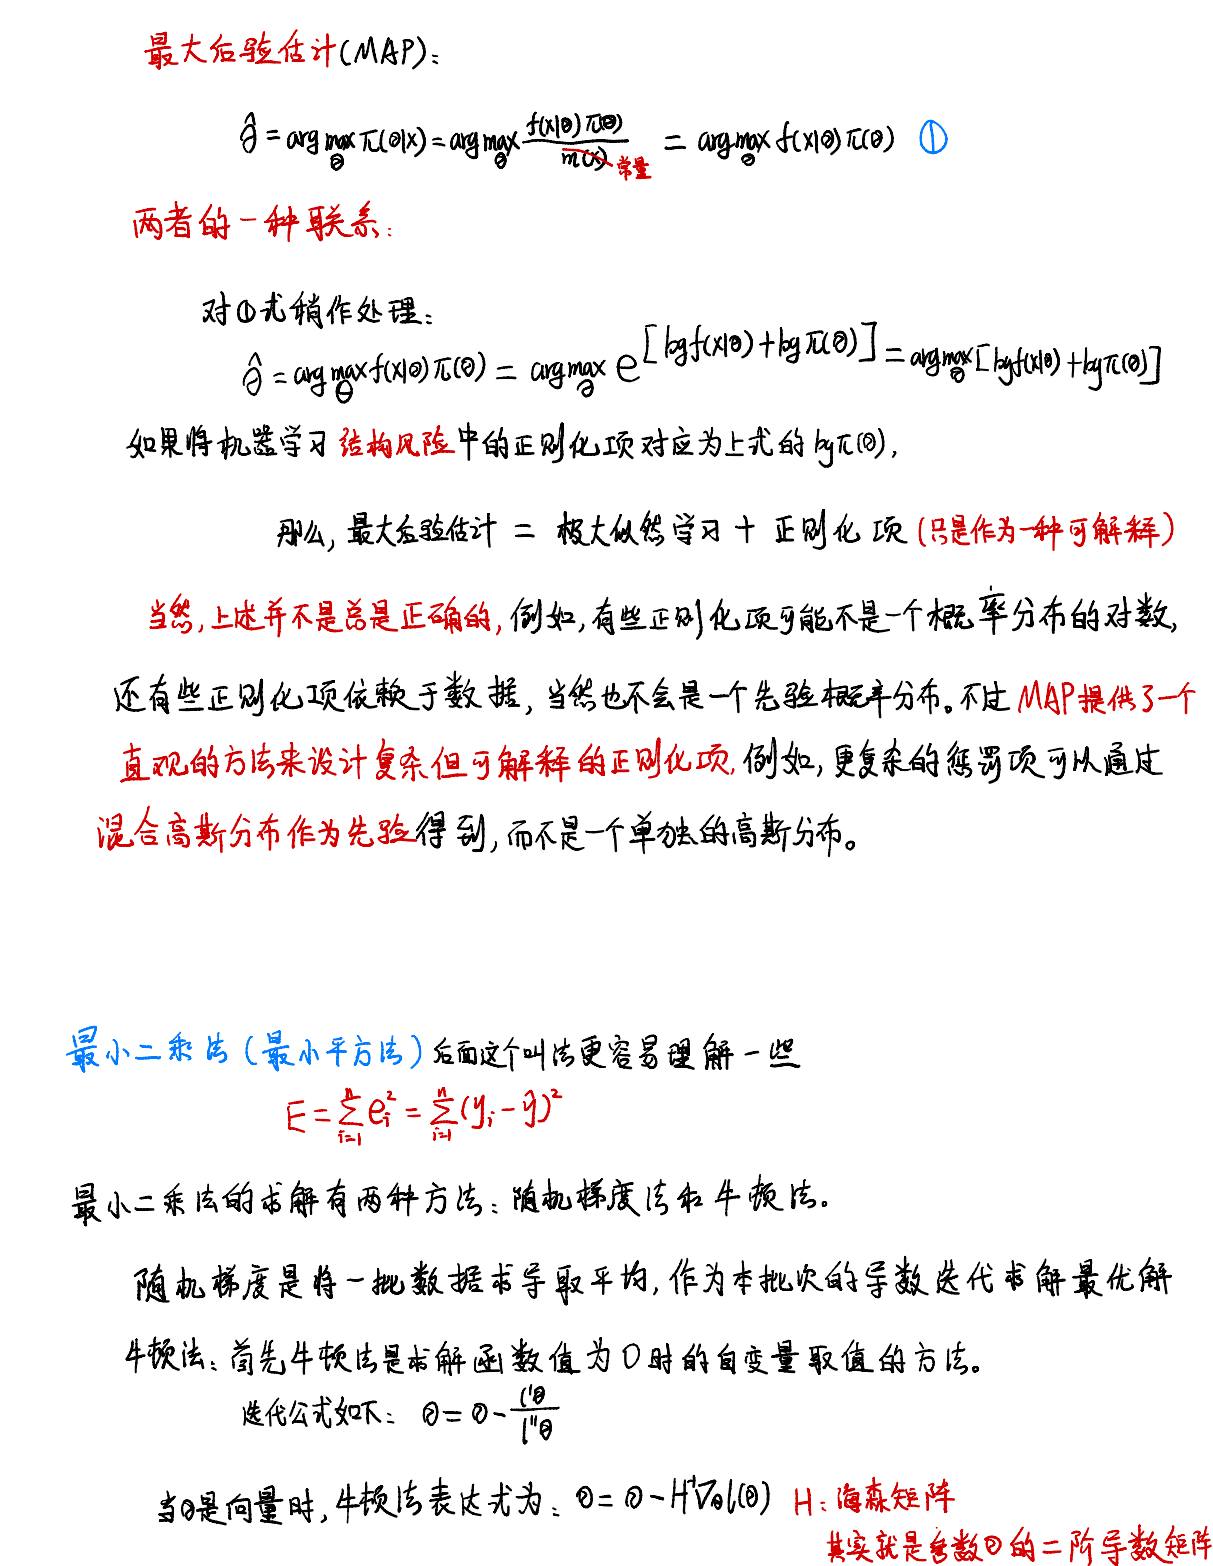 最大后验估计(MAP):
θ̂ = arg max_θ π(θ|x) = arg max_θ f(x|θ)π(θ) / m(x) 常量 = arg max_θ f(x|θ)π(θ) ①
两者的一种联系:
对①式稍作处理:
θ̂ = arg max_θ f(x|θ)π(θ) = arg max_θ e^[log f(x|θ) + log π(θ)] = arg max_θ [log f(x|θ) + log π(θ)]
如果将机器学习结构风险中的正则化项对应为上式的 log π(θ),
那么, 最大后验估计 = 极大似然学习 + 正则化项 (只是作为一种可解释)
当然, 上述并不是总是正确的, 例如, 有些正则化项可能不是一个概率分布的对数,
还有些正则化项依赖于数据, 当然也不会是一个先验概率分布。不过 MAP提供了一个
直观的方法来设计复杂但可解释的正则化项, 例如, 更复杂的惩罚项可以通过
混合高斯分布作为先验得到, 而不是一个单独的高斯分布。
最小二乘法 (最小平方法) 后面这个叫法更容易理解一些
E = ∑_{i=1}^{n} e_i² = ∑_{i=1}^{n} (y_i - ŷ)²
最小二乘法的求解有两种方法: 随机梯度法和牛顿法。
随机梯度是将一批数据求导取平均, 作为本批次的导数迭代求解最优解
牛顿法: 首先牛顿法是求解函数值为0时的自变量取值的方法。
迭代公式如下: θ = θ - l'θ / l''θ
当θ是向量时, 牛顿法表达式为: θ = θ - H⁻¹∇_θ l(θ) H: 海森矩阵
其实就是参数θ的二阶导数矩阵